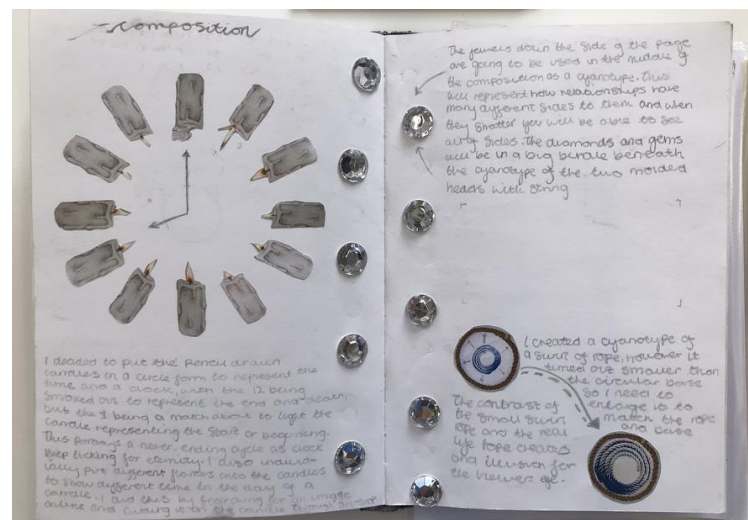 composition
I decided to put the pencil drawn
candles in a circle form to represent the
time and a clock, with the 12 being
smoked out to represent the end and death,
but the 1 being a match about to light the
candle representing the start or beginning.
This portrays a never ending cycle as clock
keep ticking for eternity. I also
put different flames onto the candles
to show different time in the day of a
candle. I did this by searching for an image
online and it on the candle through
The jewels down the side of the page
are going to be used in the middle of
the composition as a cyanotype. This
will represent how relationships have
many different sides to them and when
they shatter you will be able to see
all of sides. The diamonds and gems
will be in a big bundle beneath
the cyanotype of the two molded
heads with string
I created a cyanotype of
a swirl of rope, however it
turned out smaller than
the circular base
so I need to
enlarge it to
match the rope
and base
The contrast of
the small swirl
rope and the real
life rope creates
and illusion for
the viewers eye.